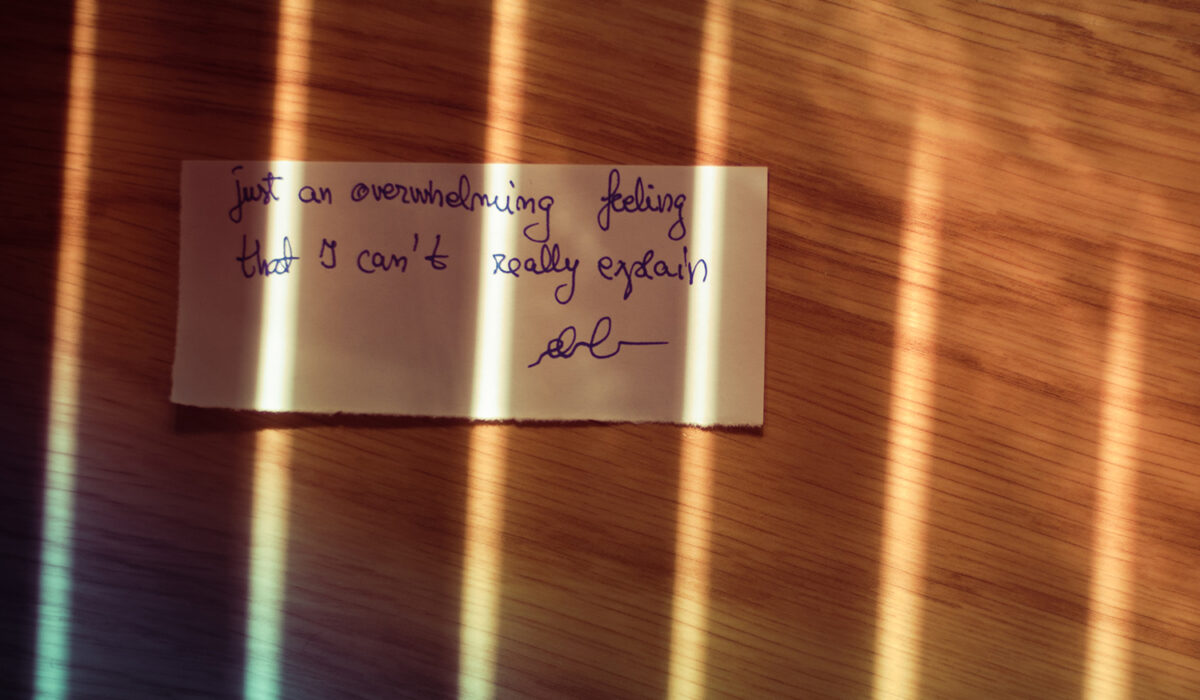 just an overwhelming feeling
that I can't really explain